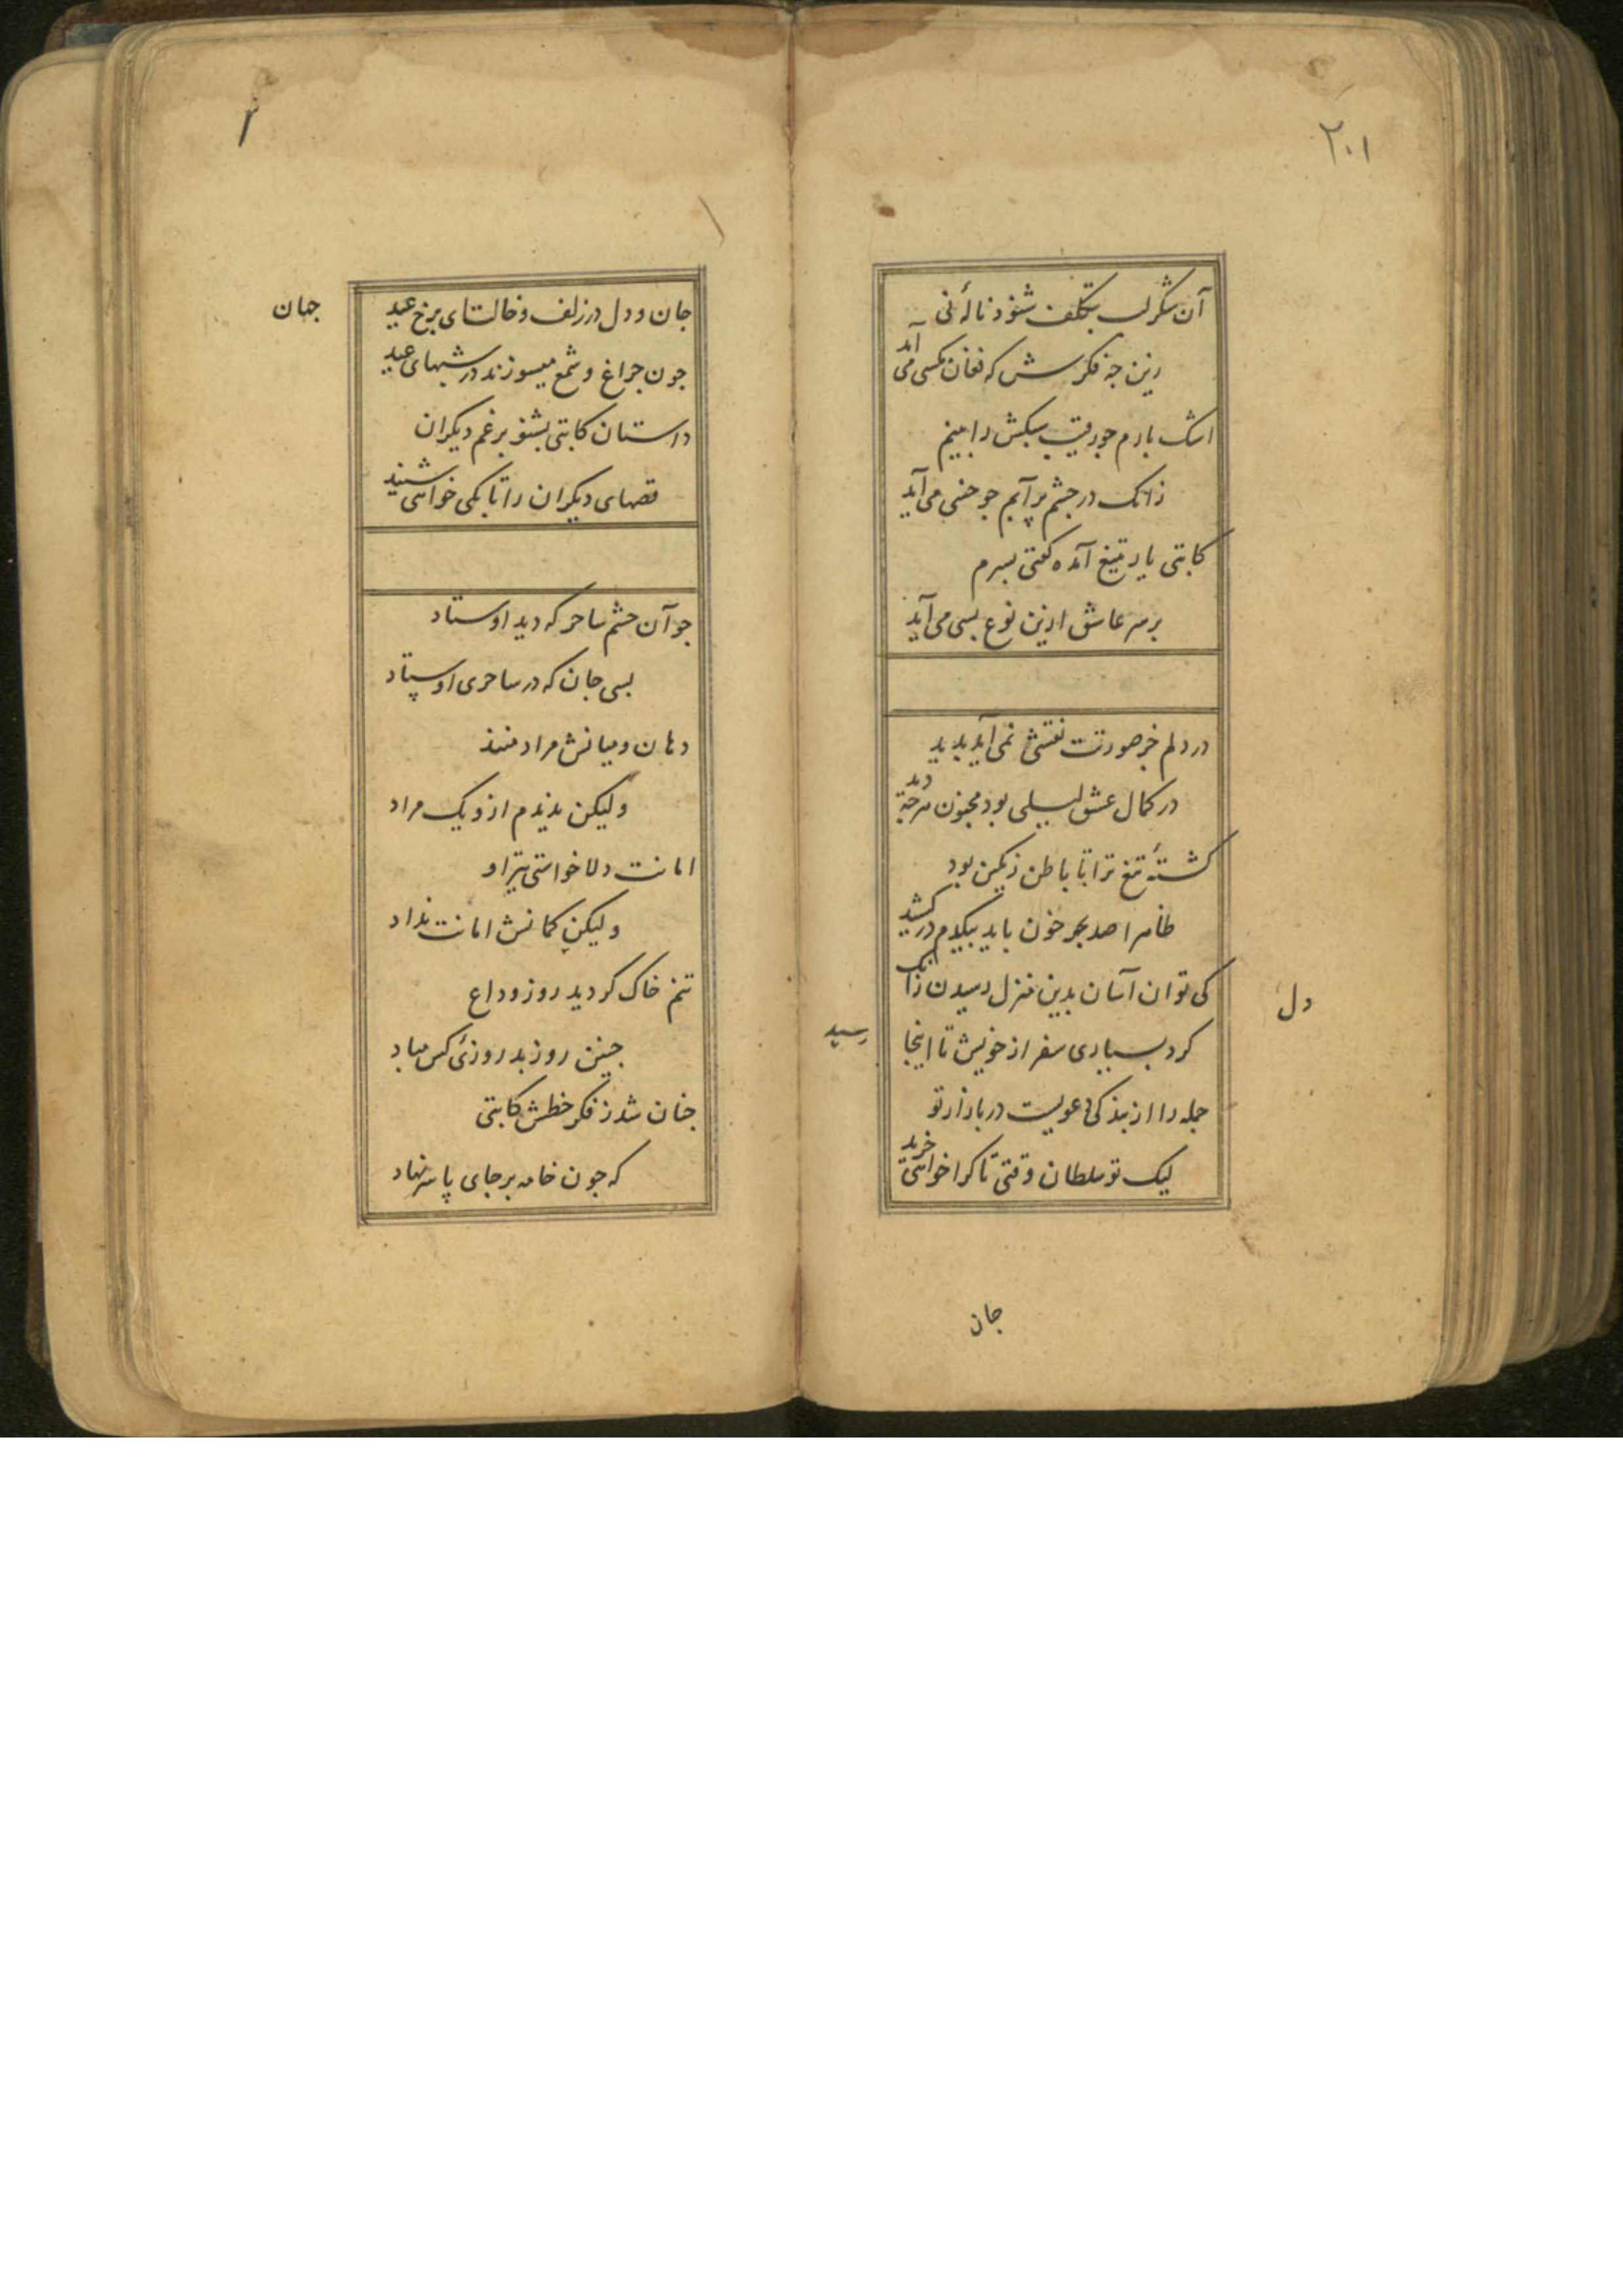 ۲۰۱
آن شکرلب بتکلف شنود نالهٔ نی
زین چه فکرش که فغان مکسی می آید
اشک بارم جو رقیب سبکش را بینم
زانک در جشم پر آبم جو خسی می آید
کاتبی یار بتیغ آمده گفتی بسرم
بر سر عاشق ازین نوع بسی می آید
در دلم جز صورتت نقشی نمی آید بدید
در کمال عشق لیلی بود مجنون هرجه دید
کشتهٔ تیغ ترا تا باطن رنگین بود
ظاهرا صد بحر خون باید بیکدم درکشید
کی توان آسان بدین منزل رسیدن زانک
دل
کرد بسیاری سفر از خویش تا اینجا
رسید
جمله را از بندگی دعویست در بازار تو
لیک تو سلطان وقتی تا کرا خواهی خرید
جان
جان و دل در زلف و خالت ای برخ عید
جهان
جون جراغ و شمع میسوزند در شبهای عید
داستان کاتبی بشنو بر غم دیکران
قصهای دیکران را تا بکی خواهی شنید
جو آن جشم ساحر که دید اوستاد
بسی جان که در ساحری اوستاد
دهان و میانش مرادمنند
ولیکن ندیدم ازو یک مراد
امانت دلا خواستی تیر او
ولیکن کمانش امانت نداد
تنم خاک کردید روز وداع
جنین روز بد روزئ کس مباد
جنان شد ز فکر خطش کاتبی
که جون خامه بر جای پا سر نهاد